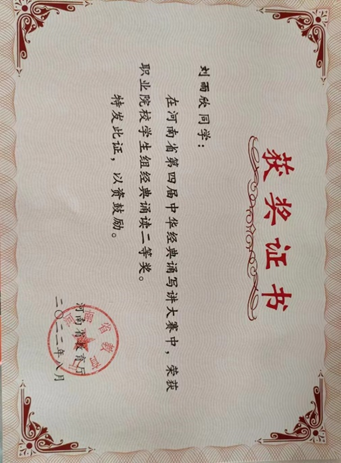 获奖证书
刘雨欣同学：
在河南省第四届中华经典诵写讲大赛中，荣获
职业院校学生组经典诵读二等奖。
特发此证，以资鼓励。
河南省教育厅
二〇二二年八月